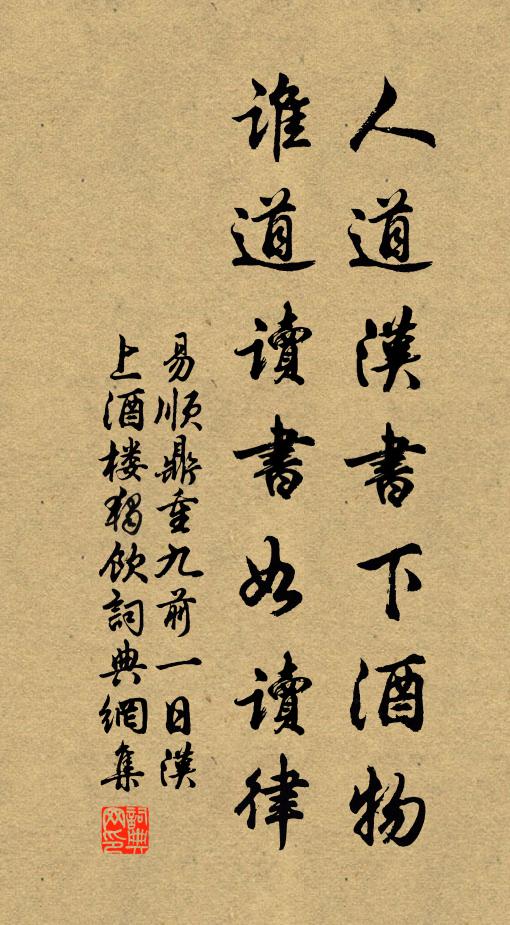 人道漢書下酒物
誰道讀書如讀律
易順鼎重九前一日漢
上酒楼獨飲詞典網集
詞典
网印